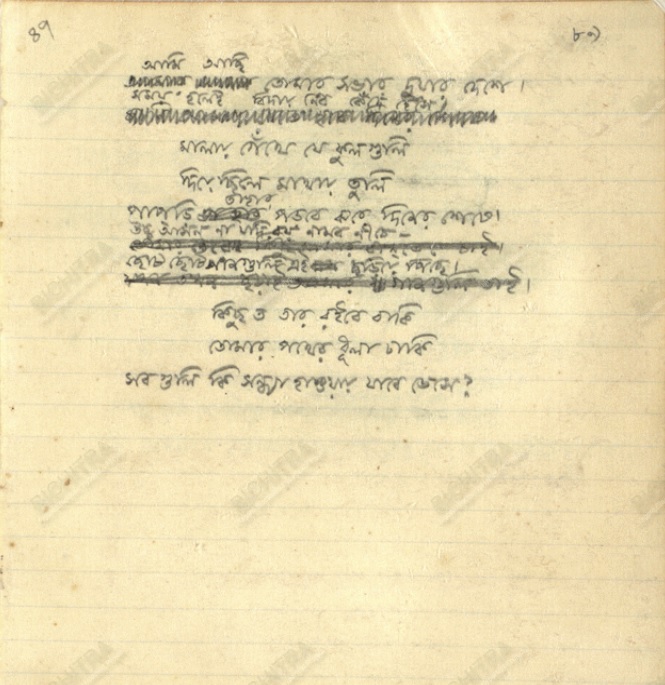 আমি আছি
তোমার সভার দুয়ার দেশে।
সময় হলেই বিদায় নেব কেঁদে হেসে।
মালায় গেঁথে যে ফুলগুলি
দিয়েছিলে মাথায় তুলি
তাহার
পাপড়ি পড়বে ঝরে দিনের শেষে।
উচ্চ আসন না যদি রয় নামব নীচে —
ছোট ছোট গানগুলি এই ছড়িয়ে পিছে।
গানগুলি তাই।
কিছু ত তার রইবে বাকি
তোমার পথের ধূলা ঢাকি
সবগুলি কি সন্ধ্যা হাওয়ায় যাবে ভেসে?
BICHITRA